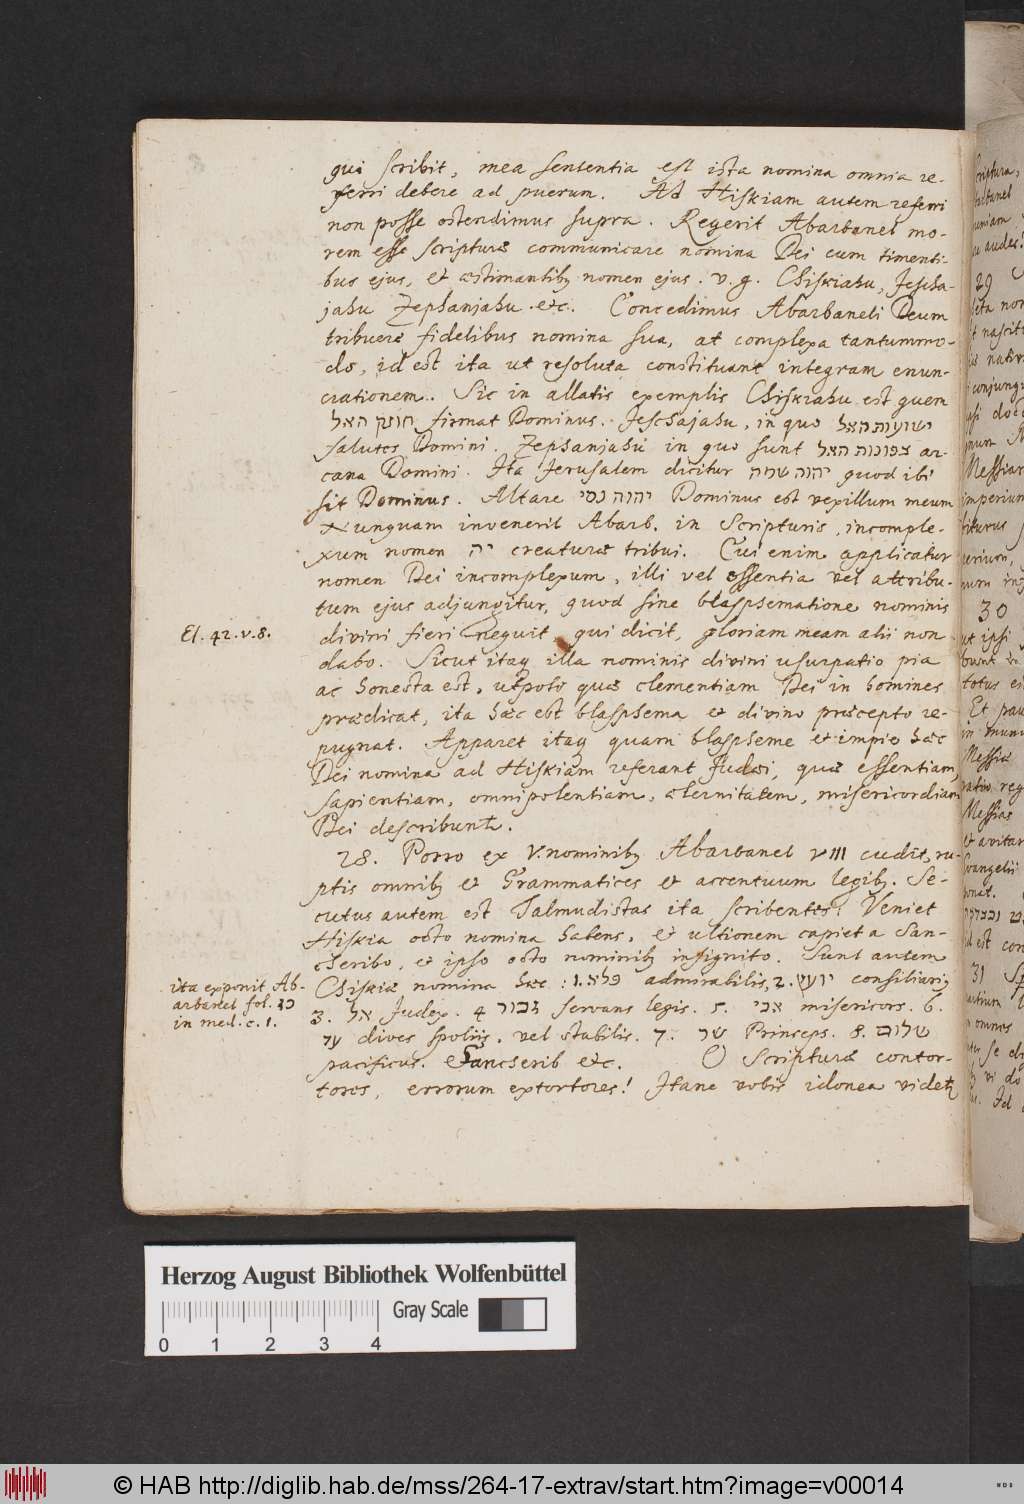 qui scribit, mea sententia est ista nomina omnia re-
ferri debere ad puerum. Ad Hiskiam autem referri
non posse ostendimus supra. Regerit Abarbanel mo-
rem esse scripturæ communicare nomina Dei cum timenti-
bus ejus, et æstimantibq nomen ejus. v. g. Chiskiahu, Jescha-
jahu Zephanjahu. etc. Concedimus Abarbaneli Deum
tribuere fidelibus nomina sua, at complexa tantummo-
do, id est ita ut resoluta constituant integram enun-
ciationem. Sic in allatis exemplis Chiskiahu est quem
חוזק האל firmat Dominus. Jeschajahu, in quo ישועות האל
salutes Domini. Zephanjahu in quo sunt צפונות האל ar-
cana Domini. Ita Jerusalem dicitur יהוה שמה quod ibi
sit Dominus. Altare יהוה נסי Dominus est vexillum meum
Nunquam invenerit Abarb. in Scripturis, incomple-
xum nomen יה creaturæ tribui. Cui enim applicatur
nomen Dei incomplexum, illi vel essentia vel attribu-
tum ejus adjungitur, quod sine blasphematione nominis
El. 42. v. 8.
divini fieri nequit qui dicit, gloriam meam alii non
dabo. Sicut itaq illa nominis divini usurpatio pia
ac honesta est, utpote quæ clementiam Dei in homines
prædicat, ita hæc est blasphema et divino præcepto re-
pugnat. Apparet itaq quam blaspheme et impie hæc
Dei nomina ad Hiskiam referant Judæi, quæ essentiam,
sapientiam, omnipotentiam, æternitatem, misericordiam
Dei describunt.
28. Porro ex V. nominibq Abarbanel VIII cudit, ru-
ptis omnibq et Grammatices et accentuum legibq. Se-
cutus autem est Talmudistas ita scribentes: Veniet
Hiskia octo nomina habens, et ultionem capiet a San-
cheribo, et ipso octo nominibq insignito. Sunt autem
ita exponit Ab-
arbanel fol. כז
in med. c. 1.
Chiskiæ nomina hæc: 1. פלא admirabilis, 2. יועץ consiliariq
3. אל Judex. 4 גבור servans legis. 5. אבי misericors. 6.
עד dives spoliis, vel stabilis. 7. שר Princeps. 8. שלום
pacificus. Sancherib etc. O Scripturæ contor-
tores, errorum extortores! Itane vobis idonea videtq
Herzog August Bibliothek Wolfenbüttel
Gray Scale
0 1 2 3 4
© HAB http://diglib.hab.de/mss/264-17-extrav/start.htm?image=v00014